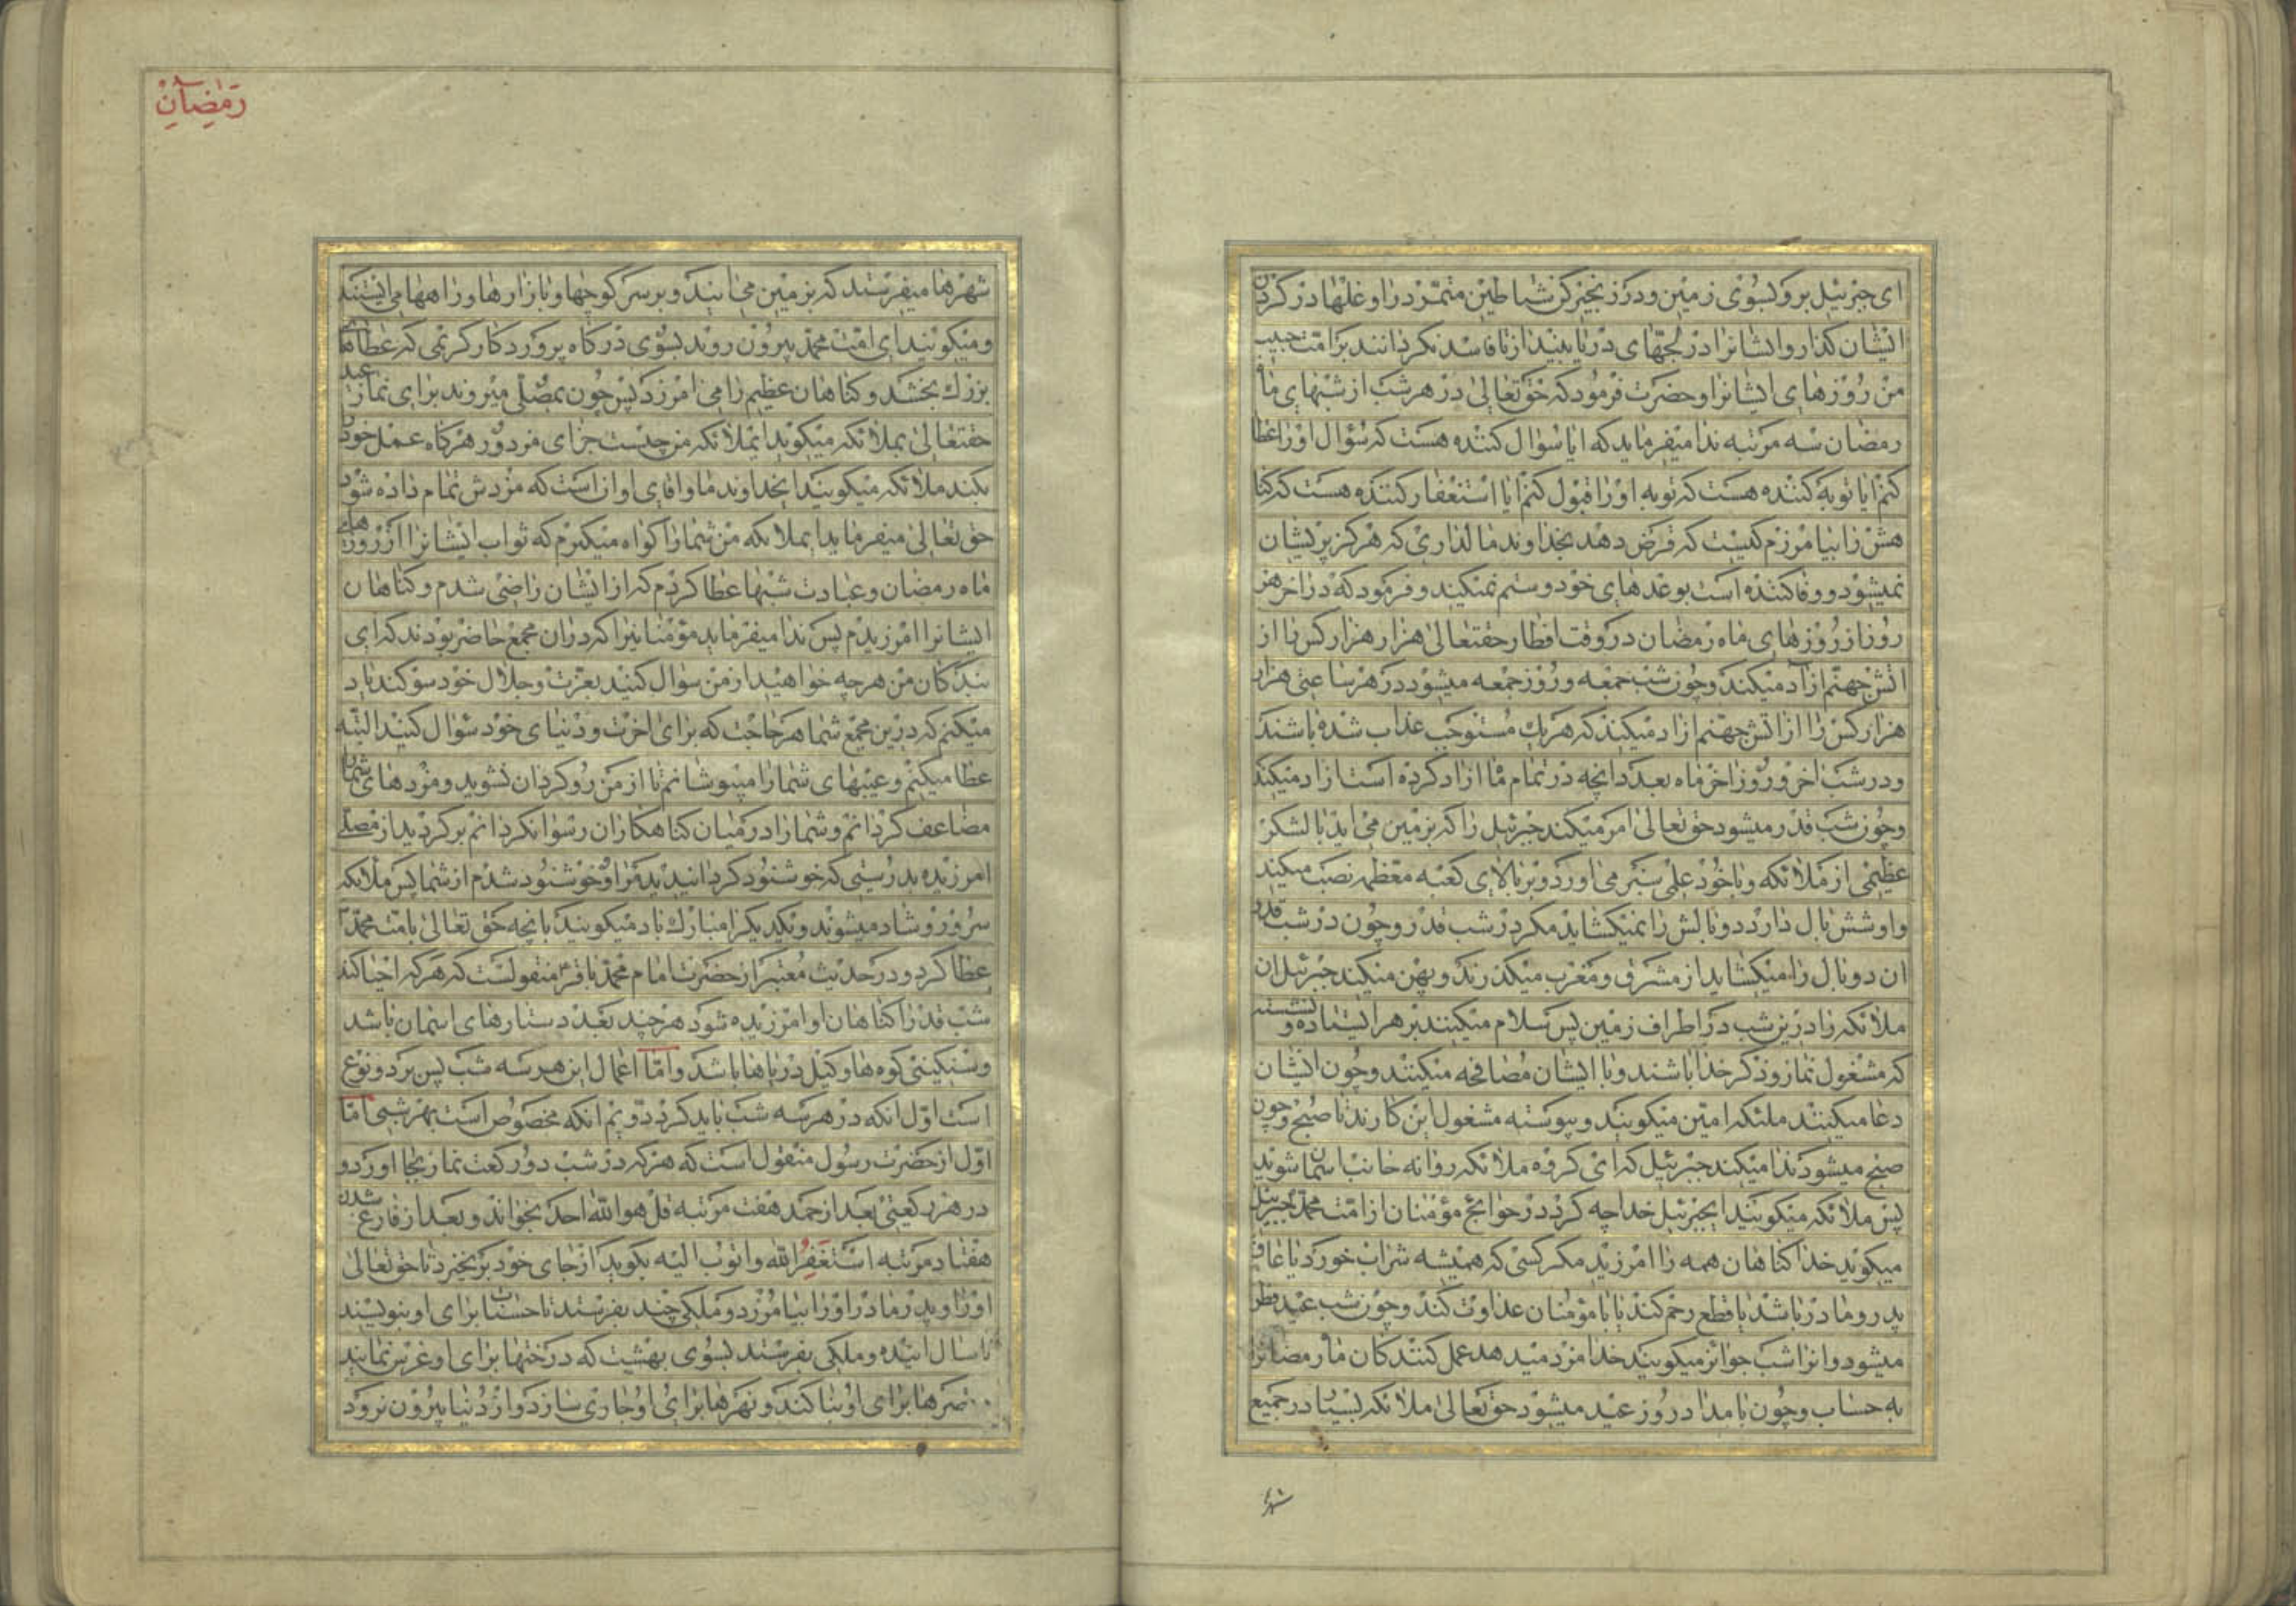 ای جبرئیل برو بسوی زمین و در زنجیر کن شیاطین متمرد را و غلها در کردن
ایشان کذار و ایشانرا در لجّهای دریا بیند از تا فاسد نکردانند بر امّت حبیب
من روزهای ایشانرا و حضرت فرمود که حقتعالی در هر شب از شبهای ماه
رمضان سه مرتبه ندا میفرماید که ایا سؤال کننده هست که سؤال او را عطا
کنم ایا توبه کننده هست که توبه او را قبول کنم ایا استغفار کننده هست که کنا
هش را بیامرزم کیست که قرض دهد بخداوند مالداری که هرکز پریشان
نمیشود و وفا کننده است بوعدهای خود و ستم نمیکند و فرمود که در اخر هر
روز از روزهای ماه رمضان در وقت افطار حقتعالی هزار هزار کس را از
اتش جهنّم ازاد میکند و چون شب جمعه و روز جمعه میشود در هر ساعتی هزار
هزار کس را از اتش جهنم ازاد میکند که هر یك مستوجب عذاب شده باشند
و در شب اخر و روز اخر ماه بعدد انچه در تمام ماه ازاد کرده است ازاد میکند
و چون شب قدر میشود حق تعالی امر میکند جبرئیل را که بزمین می اید با لشکر
عظیمی از ملائکه و با خود علم سبز می اورد و بر بالای کعبه معظمه نصب میکند
و او شش بال دارد دو بالش را نمیکشاید مکر در شب قدر و چون در شب قدر
ان دو بال را میکشاید از مشرق و مغرب میکذرند و پهن میکند جبرئیل ان
ملائکه را درین شب در اطراف زمین پس سلام میکنند بر هر ایستاده و نشسته
که مشغول نماز و ذکر خدا باشند و با ایشان مصافحه میکنند و چون ایشان
دعا میکنند ملئکه امین میکویند و پیوسته مشغول این کارند تا صبح و چون
صبح میشود ندا میکند جبرئیل که ای کروه ملائکه روانه جانب اسمان شوید
پس ملائکه میکویند ایجبرئیل خدا چه کرد در حوایج مؤمنان از امّت محمّد جبرئیل
میکوید خدا کناهان همه را امرزید مکر کسی که همیشه شراب خورد یا عاق
پدر و مادر باشد یا قطع رحم کند یا با مؤمنان عداوت کند و چون شب عید فطر
میشود و انرا شب جوائز میکویند خدا مزد میدهد عمل کنندکان ماه رمضانرا
به حساب و چون بامداد روز عید میشود حق تعالی ملائکه بسیار در جمیع
شهر
رمضان
شهرها میفرستد که بزمین می ایند و بر سر کوچها و بازارها و راهها می ایستند
و میکویند ای امّت محمّد بیرون روید بسوی درکاه پروردکار کریمی که عطاها
بزرك بخشد و کناهان عظیم را می امرزد پس چون بمصلّی میروند برای نماز عید
حقتعالی بملائکه میکوید ایملائکه من چیست جزای مزدور هرکاه عمل خود را
بکند ملائکه میکویند ایخداوند ما و اقای ما جزای او ان است که مزدش تمام داده شود
حق تعالی میفرماید ایملائکه من شما را کواه میکیرم که ثواب ایشانرا از روزهای
ماه رمضان و عبادت شبها عطا کردم که از ایشان راضی شدم و کناهان
ایشانرا امرزیدم پس ندا میفرماید مؤمنانیرا که دران مجمع حاضر بودند که ای
بندکان من هر چه خواهید از من سؤال کنید بعزّت و جلال خود سوکند یاد
میکنم که درین مجمع شما هر حاجت که برای اخرت و دنیای خود سؤال کنید البتّه
عطا میکنم و عیبهای شما را میپوشانم تا از من روکردان نشوید و مزدهای شما را
مضاعف کردانم و شما را در میان کناهکاران رسوا نکردانم برکردید از مصلّی
امرزیده بدرستی که خوشنود کردانیدید مرا و خوشنود شدم از شما پس ملائکه
سرور و شاد میشوند و یکدیکر را مبارك باد میکویند بانچه حق تعالی بامّت محمّد
عطا کرد و در حدیث معتبر از حضرت امام محمّد باقر منقولست که هر که احیا کند
شب قدر را کناهان او امرزیده شود هر چند بعدد ستارهای اسمان باشد
و سنکینی کوهها و کیل دریاها باشد و امّا اعمال این هر سه شب پس بر دو نوع
است اوّل انکه در هر سه شب باید کرد دویم انکه مخصوص است بهر شبی امّا
اوّل از حضرت رسول منقول است که هر که در شب دو رکعت نماز بجا اورد و
در هر رکعتی بعد از حمد هفت مرتبه قل هو الله احد بخواند و بعد از فارغ شدن
هفتاد مرتبه استغفر الله و اتوب الیه بکوید از جای خود برنخیزد تا حق تعالی
او را و پدر و مادر او را بیامرزد و ملکی چند بفرستد تا حسنات برای او بنویسند
تا سال اینده و ملکی بفرستد بسوی بهشت که درختها برای او غرس نمایند
و قصرها برای او بنا کنند و نهرها برای او جاری سازد و از دنیا بیرون نرود